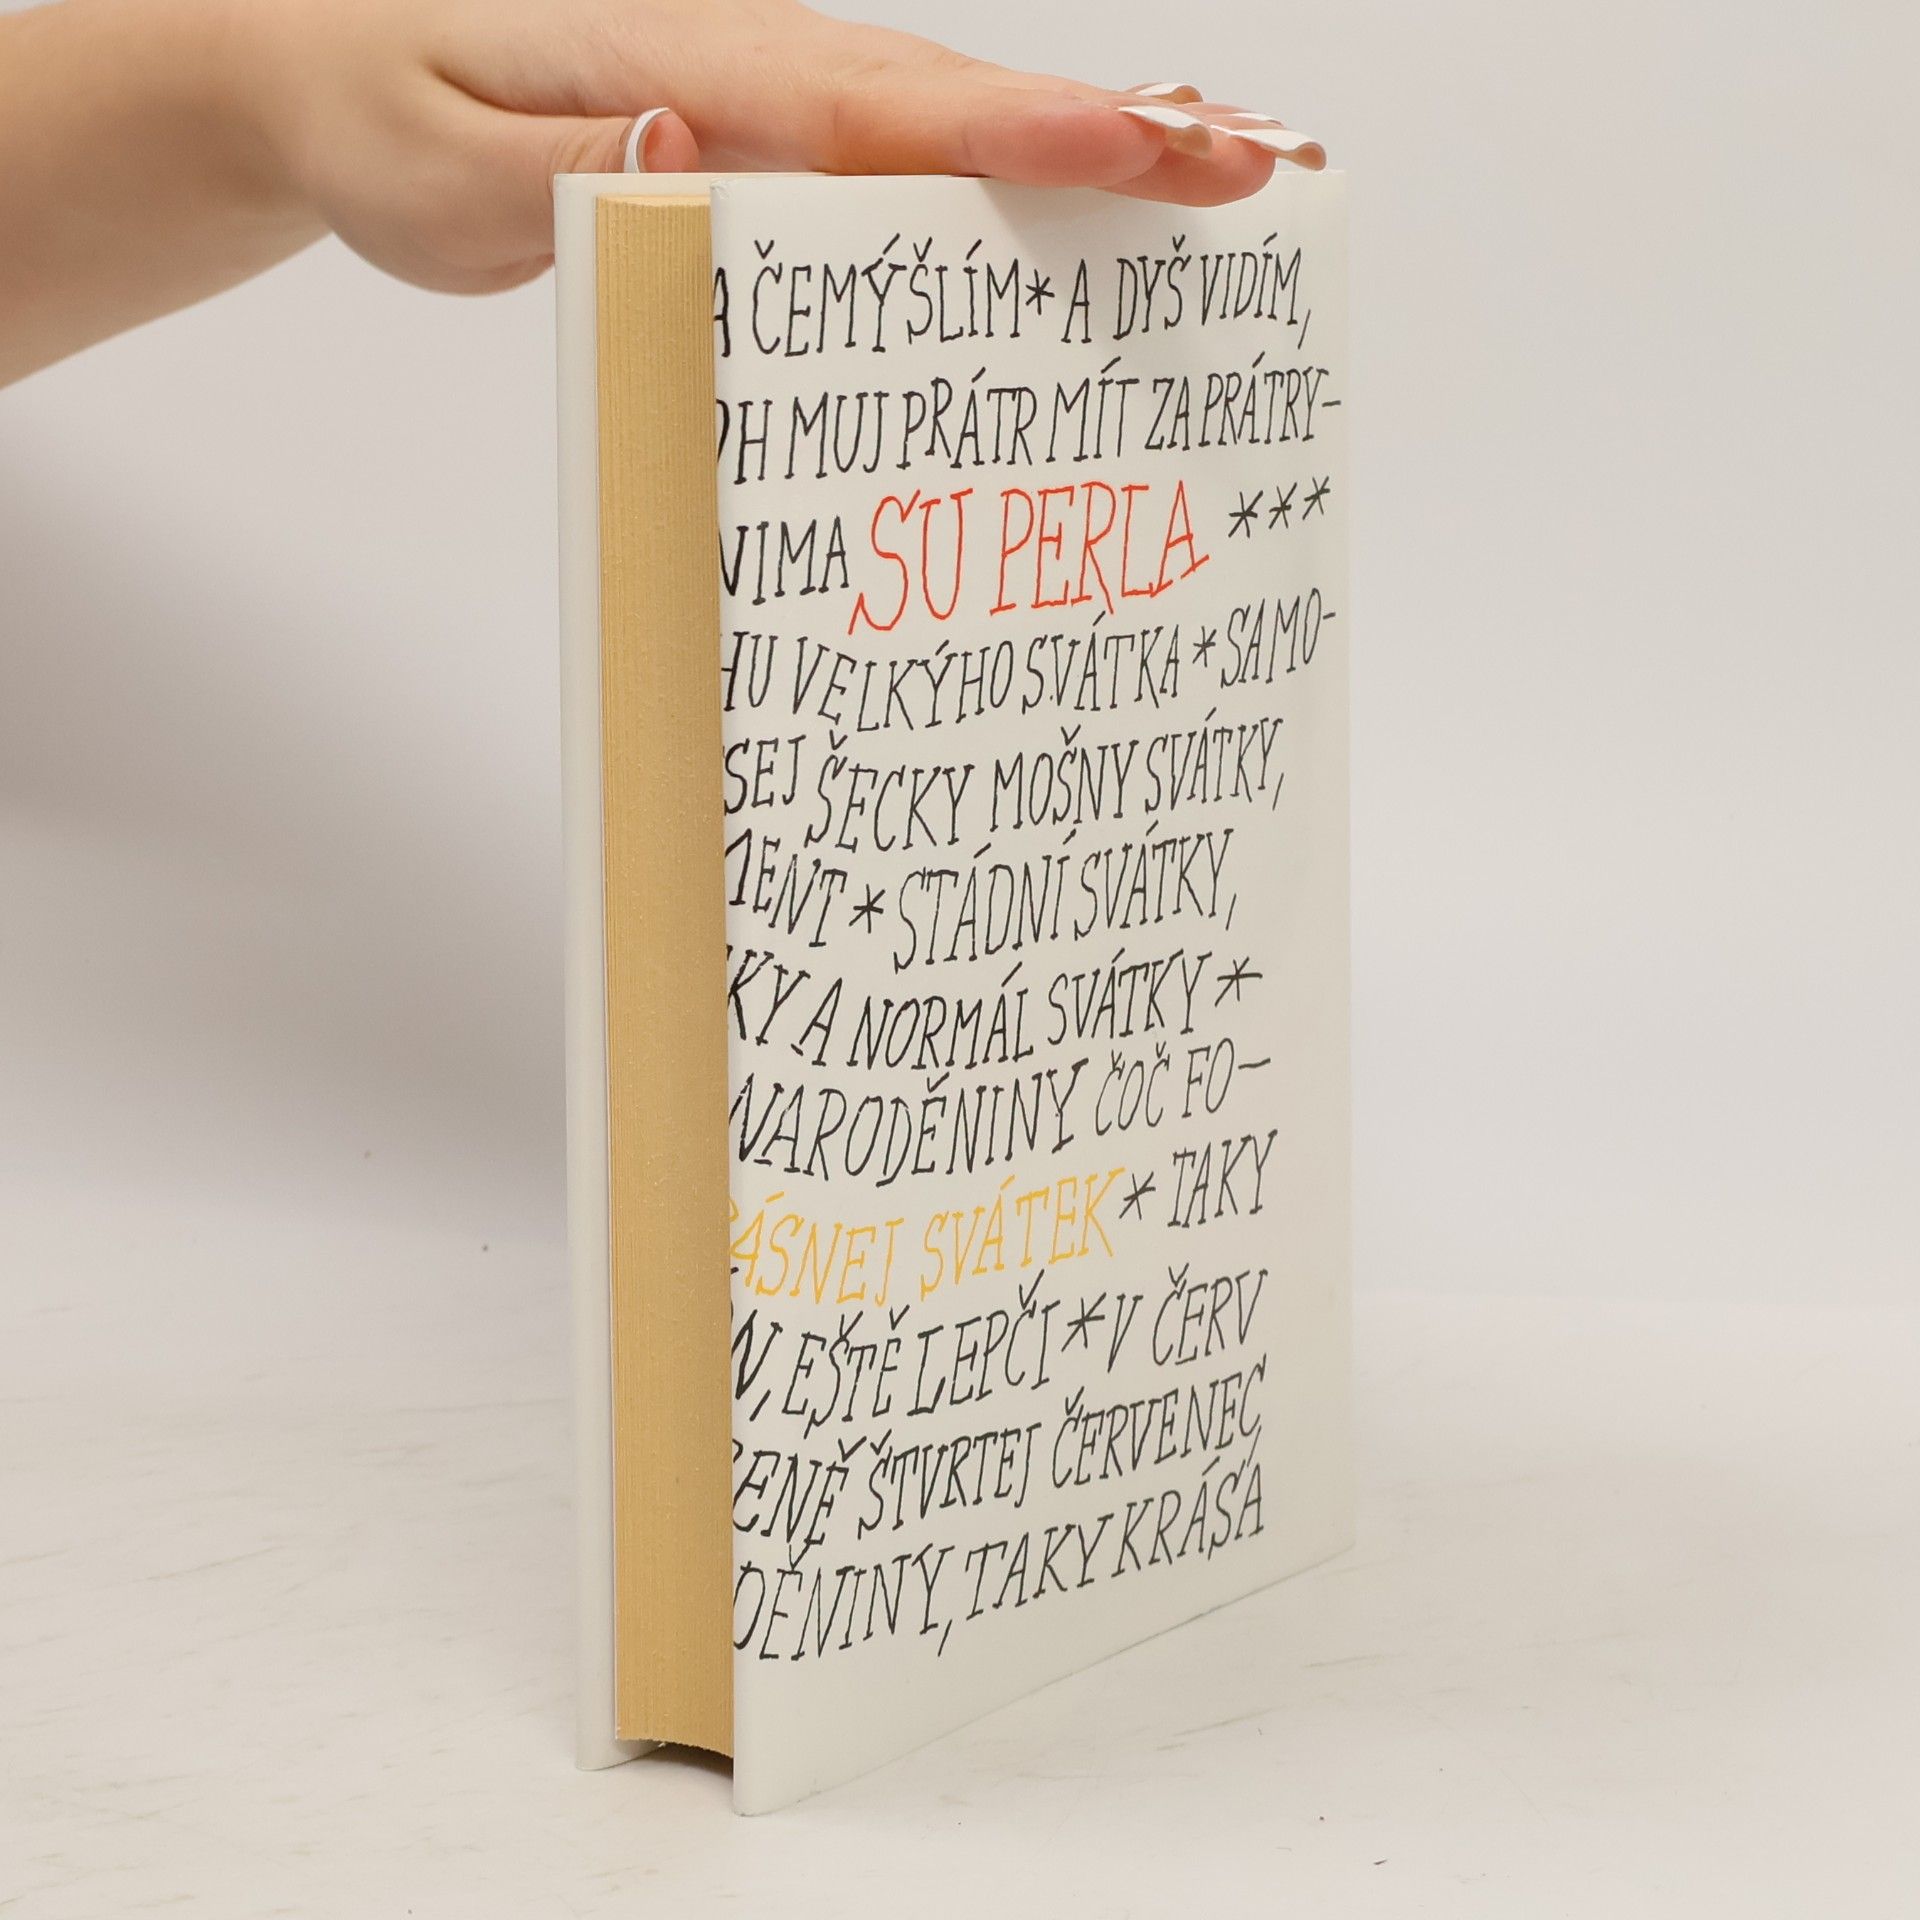 A ČEMÝŠLÍM* A DYŠ VIDÍM,
MUJ PRÁTR MÍT ZA PRÁTRY-
NIMA SU PERLA ***
HU VELKÝHO SVÁTKA * SAMO-
SEJ ŠECKY MOŠNY SVÁTKY,
MENT * STÁDNÍ SVÁTKY,
KY A NORMÁL SVÁTKY *
NARODĚNINY ČOČ FO-
ÁSNEJ SVÁTEK * TAKY
N, EŠTĚ LEPČI * V ČERV
ENĚ ŠTVRTEJ ČERVENEC
DĚNINY, TAKY KRÁSA